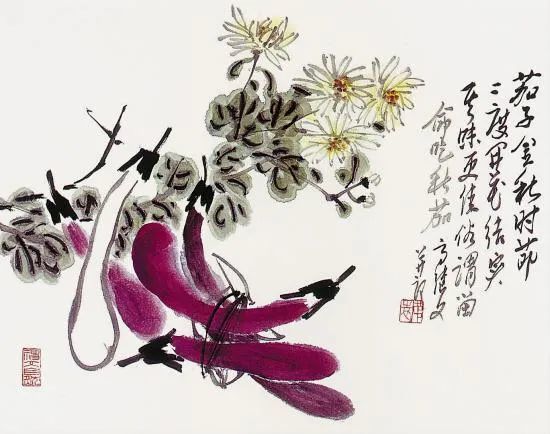 茄子金秋时节
二度开花结实
其味更佳俗谓留
命吃秋茄
并记